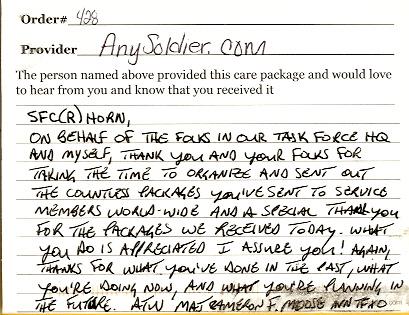 Order# 428
Provider AnySoldier.com
The person named above provided this care package and would love
to hear from you and know that you received it
SFC(R) HORN,
ON BEHALF OF THE FOLKS IN OUR TASK FORCE HQ
AND MYSELF, THANK YOU AND YOUR FOLKS FOR
TAKING THE TIME TO ORGANIZE AND SENT OUT
THE COUNTLESS PACKAGES YOU'VE SENT TO SERVICE
MEMBERS WORLD-WIDE AND A SPECIAL THANK YOU
FOR THE PACKAGES WE RECEIVED TODAY. WHAT
YOU DO IS APPRECIATED I ASSURE YOU! AGAIN,
THANKS FOR WHAT YOU'VE DONE IN THE PAST, WHAT
YOU'RE DOING NOW, AND WHAT YOU'RE PLANNING IN
THE FUTURE. MAJ CAMERON F. MOOSE